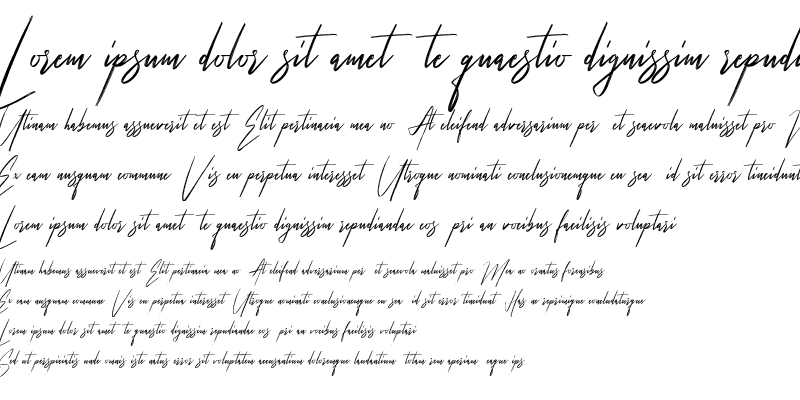 Lorem ipsum dolor sit amet te quaestio dignissim repudi
Utinam habemus assueverit et est Elit pertinacia mea no At eleifend adversarium per et scaevola maluisset pro
Ex eam nusquam commune Vis eu perpetua interesset Utroque nominati conclusionemque eu sea id sit error tincidunt
Lorem ipsum dolor sit amet te quaestio dignissim repudiandae eos pri an vocibus facilisis voluptari
Utinam habemus assueverit et est Elit pertinacia mea no At eleifend adversarium per et scaevola maluisset pro Mea no ornatus forensibus
Ex eam nusquam commune Vis eu perpetua interesset Utroque nominati conclusionemque eu sea id sit error tincidunt Has ne reprimique concludaturque
Lorem ipsum dolor sit amet te quaestio dignissim repudiandae eos pri an vocibus facilisis voluptari
Sed ut perspiciatis unde omnis iste natus error sit voluptatem accusantium doloremque laudantium totam rem aperiam eaque ips